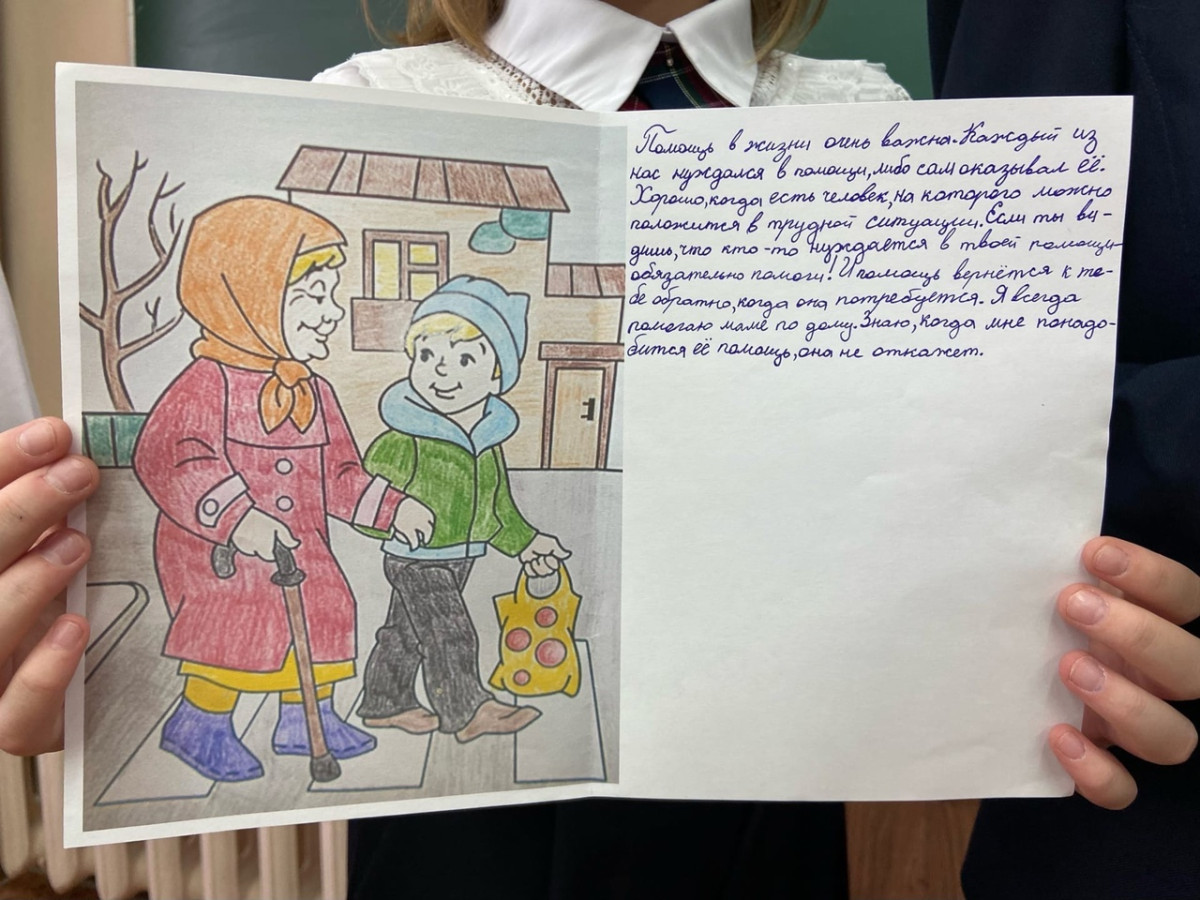 Помощь в жизни очень важна. Каждый из
нас нуждался в помощи, либо сам оказывал её.
Хорошо, когда есть человек, на которого можно
положится в трудной ситуации. Если ты ви-
дишь, что кто-то нуждается в твоей помощи-
обязательно помоги! И помощь вернётся к те-
бе обратно, когда она потребуется. Я всегда
помогаю маме по дому. Знаю, когда мне понадо-
бится её помощь, она не откажет.